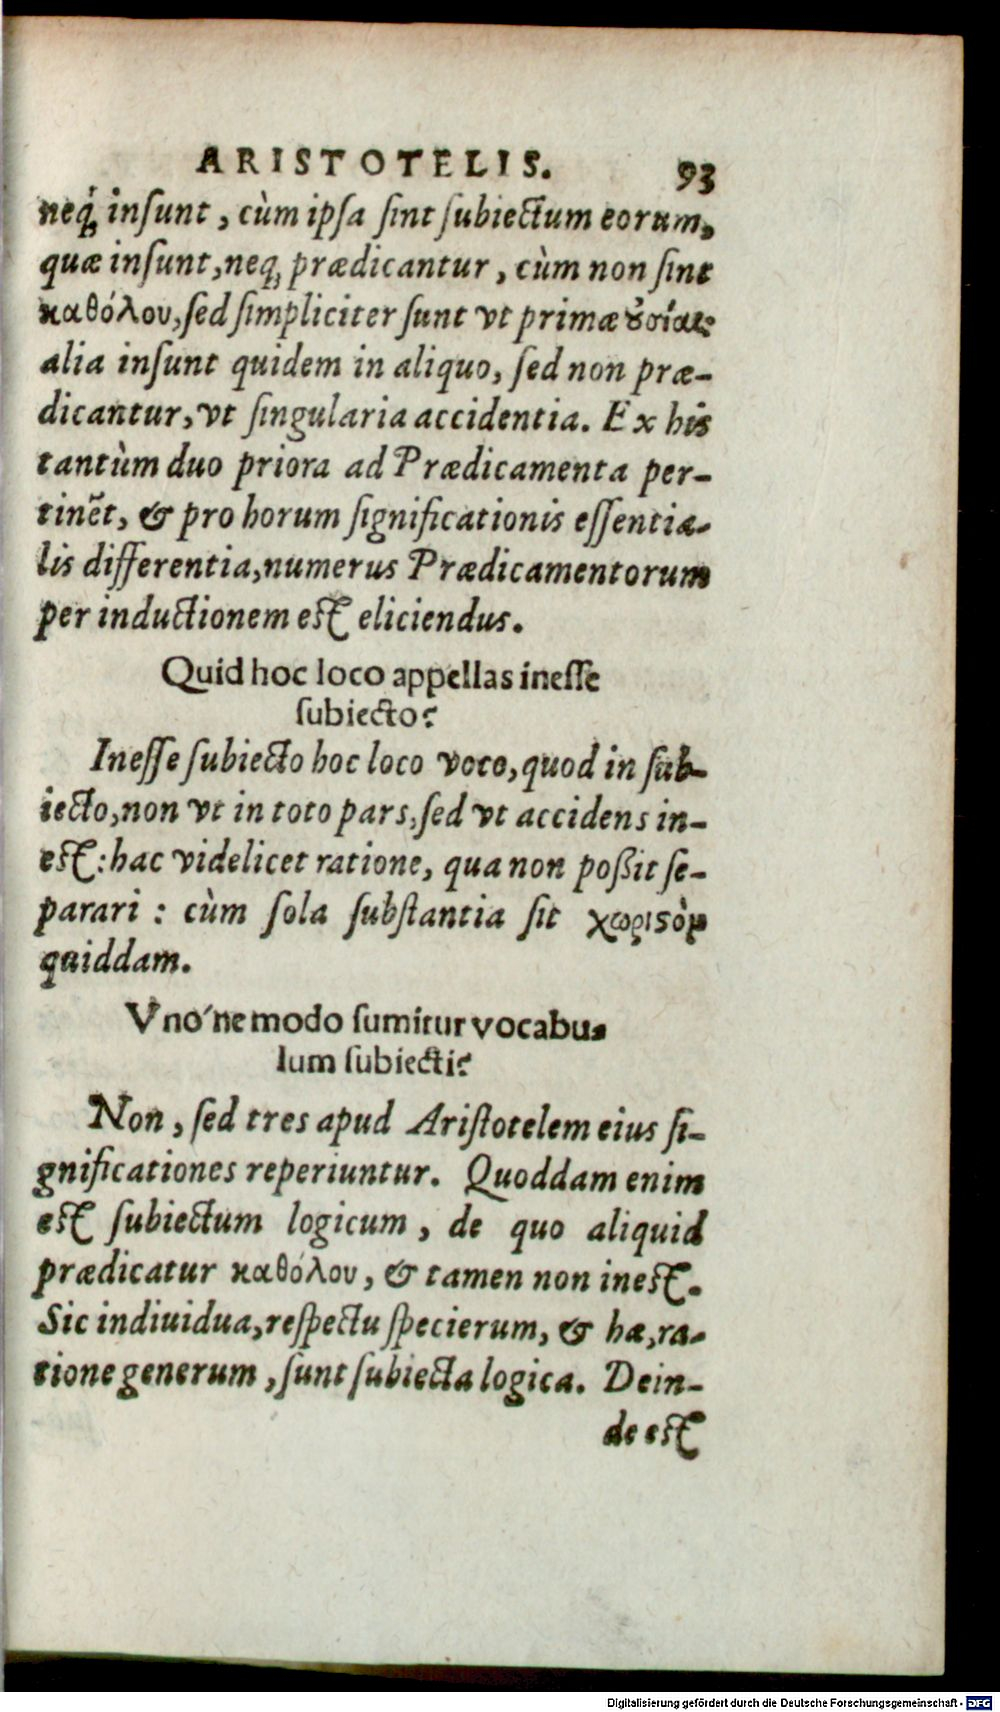 ARISTOTELIS. 93
neq́; insunt, cùm ipsa sint subiectum eorum,
quæ insunt, neq; prædicantur, cùm non sint
καθόλου, sed simpliciter sunt vt primæ ȣσίαι:
alia insunt quidem in aliquo, sed non præ-
dicantur, vt singularia accidentia. Ex his
tantùm duo priora ad Prædicamenta per-
tinēt, & pro horum significationis essentia-
lis differentia, numerus Prædicamentorum
per inductionem est eliciendus.
Quid hoc loco appellas inesse
subiecto?
Inesse subiecto hoc loco voco, quod in sub-
iecto, non vt in toto pars, sed vt accidens in-
est: hac videlicet ratione, qua non poßit se-
parari: cùm sola substantia sit χωριϛὸν
quiddam.
Vno´ne modo sumitur vocabu-
lum subiecti?
Non, sed tres apud Aristotelem eius si-
gnificationes reperiuntur. Quoddam enim
est subiectum logicum, de quo aliquid
prædicatur καθόλου, & tamen non inest.
Sic indiuidua, respectu specierum, & hæ, ra-
tione generum, sunt subiecta logica. Dein-
de est
Digitalisierung gefördert durch die Deutsche Forschungsgemeinschaft - DFG